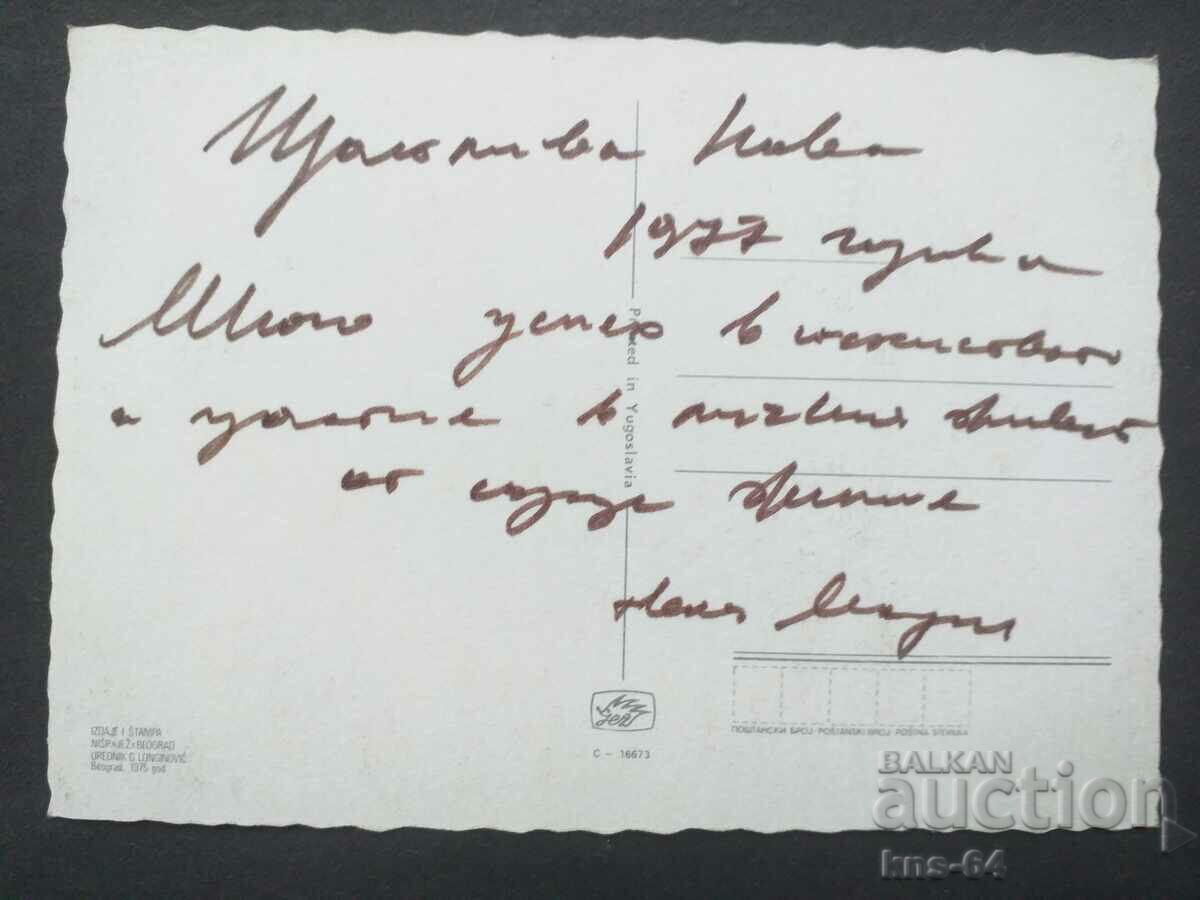 Щастлива Нова
1977 година
Много успех в
и щастие в личния живот
от сърце желае
Printed in Yugoslavia
IZDAJE I ŠTAMPA
NIŠP. »JEŽ« BEOGRAD
UREDNIK G. LONGINOVIĆ
Beograd, 1975 god.
C - 16673
ПОШТАНСКИ БРОЈ POŠTANSKI BROJ POŠTNA ŠTEVILKA
BALKAN
auction
kns-64